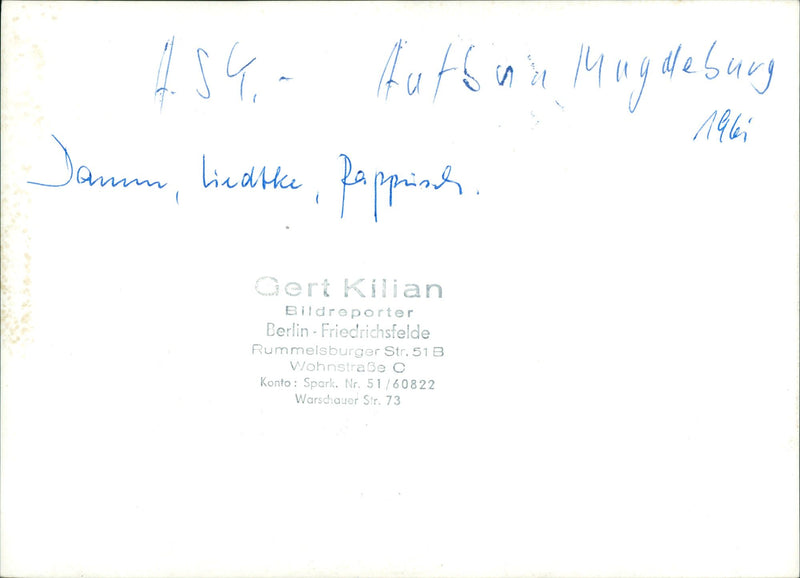 A.S.G. - Aufbau Magdeburg
196
Damm, Liedtke, Pappusch.
Gert Kilian
Bildreporter
Berlin-Friedrichsfelde
Rummelsburger Str. 51 B
Wohnstraße C
Konto: Spark. Nr. 51/60822
Warschauer Str. 73